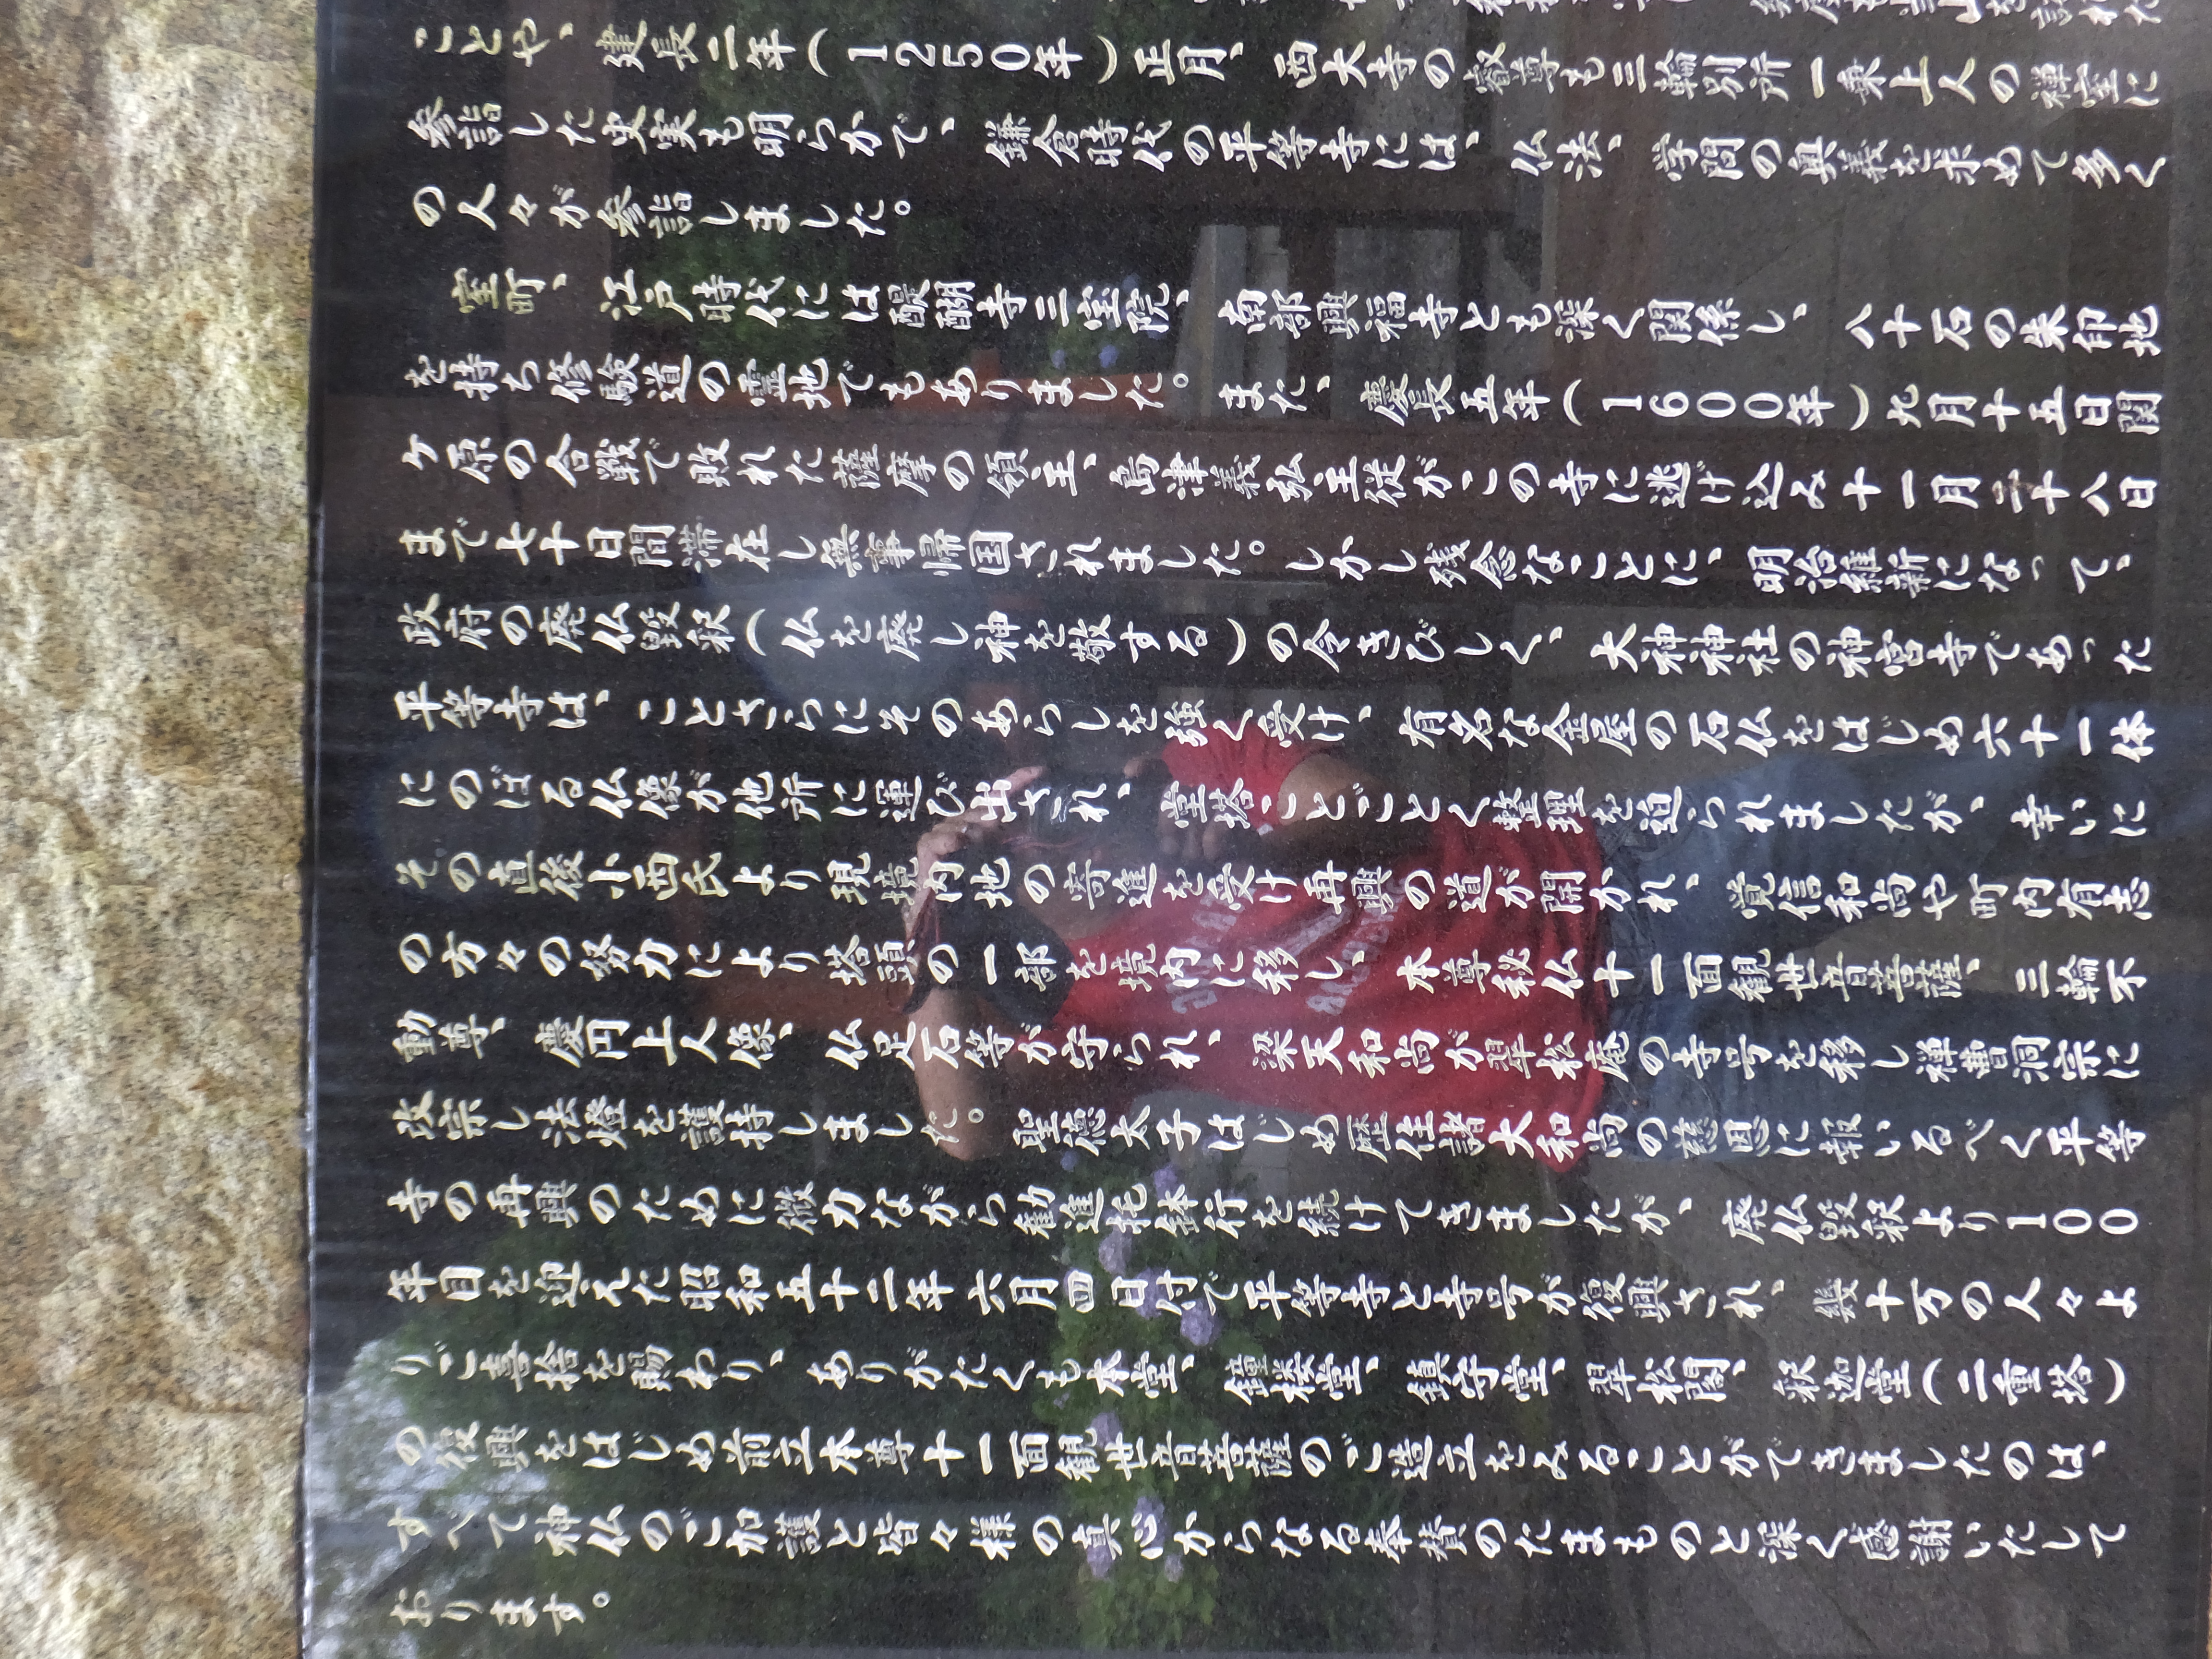 ことや、建長二年(1250年)正月、西大寺の叡尊も三輪別所一乗上人の禅室に
参詣した史実も明らかで、鎌倉時代の平等寺には、仏法、学問の奥義を求めて多く
の人々が参詣しました。
室町、江戸時代には醍醐寺三宝院、南部興福寺とも深く関係し、八十石の朱印地
を持ち修験道の霊地でもありました。また、慶長五年(1600年)九月十五日関
ケ原の合戦で敗れた薩摩の領主、島津義弘主従がこの寺に逃げ込み十一月二十八日
まで七十日間滞在し無事帰国されました。しかし残念なことに、明治維新になって、
政府の廃仏毀釈(仏を廃し神を敬する)の令きびしく、大神神社の神宮寺であった
平等寺は、ことさらにそのあらしを強く受け、有名な金屋の石仏をはじめ六十一体
にのぼる仏像が他所に運び出され、堂塔ことごとく整理を迫られましたが、幸いに
その直後小西氏より現境内地の寄進を受け再興の道が開かれ、覚信和尚や町内有志
の方々の努力により塔頭の一部を境内に移し、本尊秘仏十一面観世音菩薩、三輪不
動尊、慶円上人像、仏足石等が守られ、梁天和尚が翠松庵の寺号を移し禅曹洞宗に
改宗し法燈を護持しました。聖徳太子はじめ歴住諸大和尚の慈恩に報いるべく平等
寺の再興のために微力ながら勧進托鉢行を続けてきましたが、廃仏毀釈より100
年目を迎えた昭和五十二年六月四日付で平等寺と寺号が復興され、幾十万の人々よ
りご喜捨を賜わり、ありがたくも本堂、鐘楼堂、鎮守堂、翠松閣、釈迦堂(二重塔)
の復興をはじめ前立本尊十一面観世音菩薩のご造立をみることができましたのは、
すべて神仏のご加護と皆々様の真心からなる奉賛のたまものと深く感謝いたして
おります。